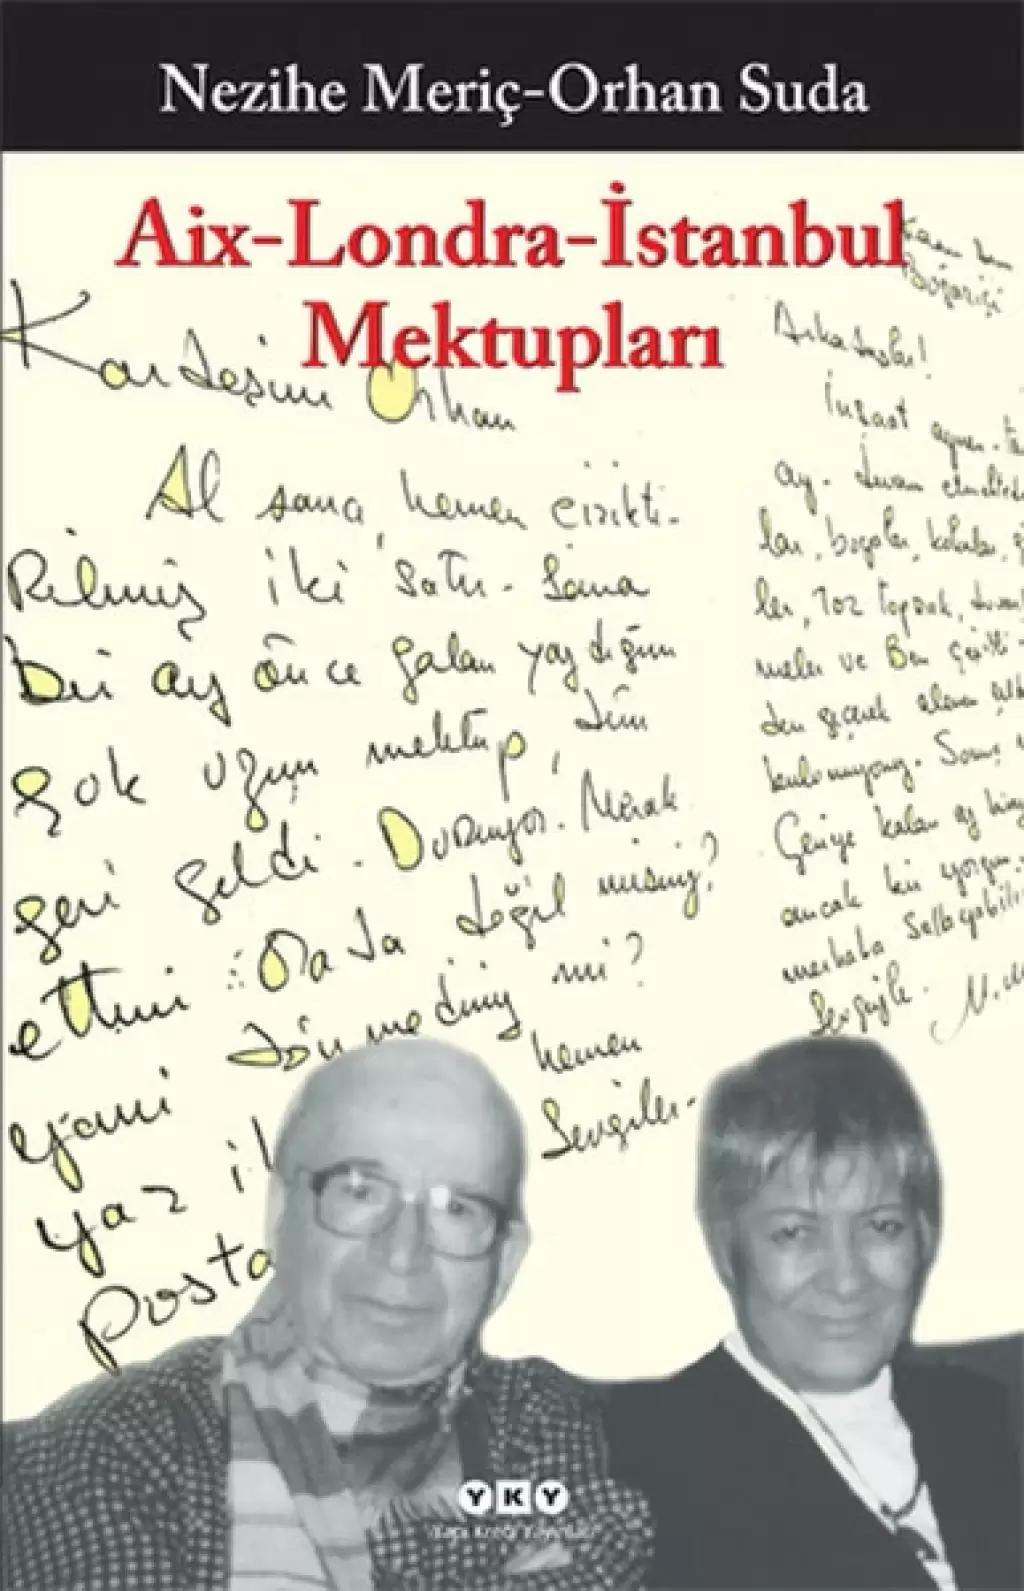 Nezihe Meriç-Orhan Suda
Aix-Londra-İstanbul
Mektupları
Kardeşim Orhan
Al sana, hemen çizikti-
Rilmiş iki satır. Sana
bir ay önce falan yazdığım
çok uzun mektup, dün
geri geldi. Duruyor. Merak
ettim. Orada değil misiniz?
yani dönmediniz mi?
yaz hemen
Posta Sevgiler.
Arkadaşlar!
İnşaat aynen
ay. devam
lar, boyalar,
ler, toz toprak,
meler ve Ben
den geçerek olana
bulamıyoruz.
Geriye kalan
ancak bir yorgun
merhaba
Sevgiyle.
YKY
Yapı Kredi Yayınları